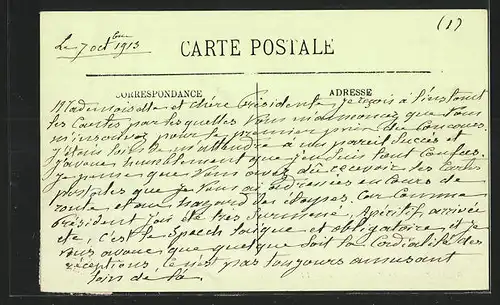 (1)
Le 7 octbre 1913
CARTE POSTALE
CORRESPONDANCE
ADRESSE
Mademoiselle et chère Présidente, je reçois à l'instant
les Cartes par lesquelles vous m'annoncez que vous
m'inscrivez pour le premier prix du Concours.
J'étais loin de m'attendre à un pareil succès et
j'avoue humblement que j'en suis tout Confus.
Je pense que vous avez dû recevoir les Cartes
postales que je vous ai adressées en Cours de
route et au hasard des étapes, Car Comme
Président j'ai été très surmené, Apéritif, arrivée
etc, c'est le Speech toujours et obligatoire et je
vous avoue que quelque soit la Cordialité des
réceptions, ce n'est pas toujours amusant
loin de là.